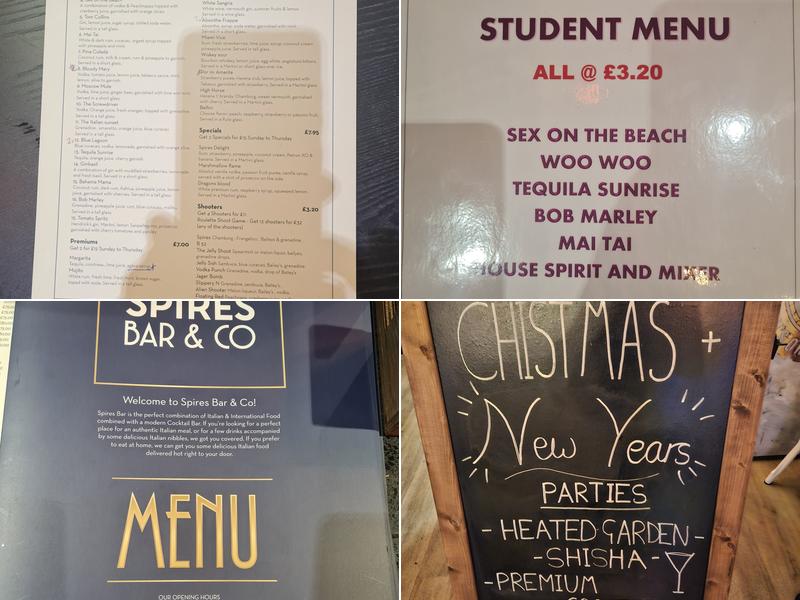 A combination of vodka & Peachtree topped with
cranberry juice, garnished with orange slices
5. Tom Collins
Gin, lemon juice, sugar syrup, chilled soda water.
Served in a tall glass
6. Mai Tai
White & dark rum, curacao, orgeat syrup topped
with pineapple and mint
7. Pina Colada
Coconut rum, milk & cream, rum & pineapple to garnish.
Served in a tall glass.
8. Bloody Mary
Vodka, tomato juice, lemon juice, tabasco sauce, mint,
lemon, olive to garnish.
9. Moscow Mule
Vodka, lime juice, ginger beer, garnished with lime
Served in a short glass
10. The Screwdriver
Vodka, Orange juice, fresh oranges, topped with grenadine
Served in a tall glass
11. The Italian sunset
Grenadine, amaretto, orange juice, blue curacao.
Served in a tall glass
12. Blue Lagoon
Blue curacao, vodka, lemonade, garnished with orange slice
13. Tequila Sunrise
Tequila, orange juice, cherry garnish.
14. Ginbasil
A combination of gin with muddled strawberries, lemonade
and fresh basil. Served in a short glass
15. Bahama Mama
Coconut rum, dark rum, Kahlua, pineapple juice, lemon
juice, garnished with cherries. Served in a tall glass
16. Bob Marley
Grenadine, pineapple juice, rum, blue curacao,
Served in a tall glass
17. Tomato Spritz
Hendricks gin, Martini, lemon Sanpellegrino, prosecco
garnished with cherry tomatoes and parsley
Premiums £7.00
Get 2 for £12 Sunday to Thursday
Margarita
Tequila, cointreau, lime juice,
Mojito
White rum, fresh lime, fresh mint, brown sugar,
topped with soda. Served in a tall glass.
White Sangria
White wine, vermouth gin, summer fruits & lemon
Served in a wine glass.
Absinthe Frappe
Absinthe, syrup, soda water, garnished with mint.
Served in a short glass.
Miami Vice
Rum, fresh strawberries, lime juice, syrup, coconut cream
pineapple juice. Served in a tall glass.
Wiskey sour
Bourbon whiskey, lemon juice, egg white, angostura bitters.
Served in a Martini or short glass over ice.
Flor in Amerita
Strawberry puree, Havana club, lemon juice, topped with
Tabasco, garnished with strawberry. Served in a Martini glass.
High Horse
Havana 7, brandy, Chambourg, sweet vermouth, garnished
with cherry. Served in a Martini glass.
Bellini
Choose flavor: peach, raspberry, strawberry or passion fruit,
Served in a flute glass
Specials £7.95
Get 2 Specials for £15 Sunday to Thursday
Spires Delight
Rum, strawberry, pineapple, coconut cream, Patron XO &
banana. Served in a Martini glass
Marshmallow flame
Absolut vanilla vodka, passion fruit puree, vanilla syrup,
served with a shot of prosecco on the side.
Dragons blood
White premium rum, raspberry syrup, squeezed lemon.
Served in a Martini glass
Shooters £3.20
Get 4 Shooters for £11
Roulette Shoot Game - Get 12 shooters for £32
(any of the shooters)
Spires Chambourg, Frangelico, Baileys & grenadine
B 52
The Jelly Shoot Spearmint or melon liqueur, baileys,
grenadine drops.
Jelly Fish Sambuca, blue curacao, Bailey's, grenadine
Vodka Punch Grenadine, vodka, drop of Bailey's
Jager Bomb
Slippery N Grenadine, sambuca, Bailey's
Alien Shooter Melon liqueur, Bailey's, vodka,
STUDENT MENU
ALL @ £3.20
SEX ON THE BEACH
WOO WOO
TEQUILA SUNRISE
BOB MARLEY
MAI TAI
HOUSE SPIRIT AND MIXER
SPIRES
BAR & CO
Welcome to Spires Bar & Co!
Spires Bar is the perfect combination of Italian & International Food
combined with a modern Cocktail Bar. If you're looking for a perfect
place for an authentic Italian meal, or for a few drinks accompanied
by some delicious Italian nibbles, we got you covered. If you prefer
to eat at home, we can get you some delicious Italian food
delivered hot right to your door.
MENU
OUR OPENING HOURS
CHISTMAS +
New Years
PARTIES
- HEATED GARDEN -
- SHISHA -
- PREMIUM